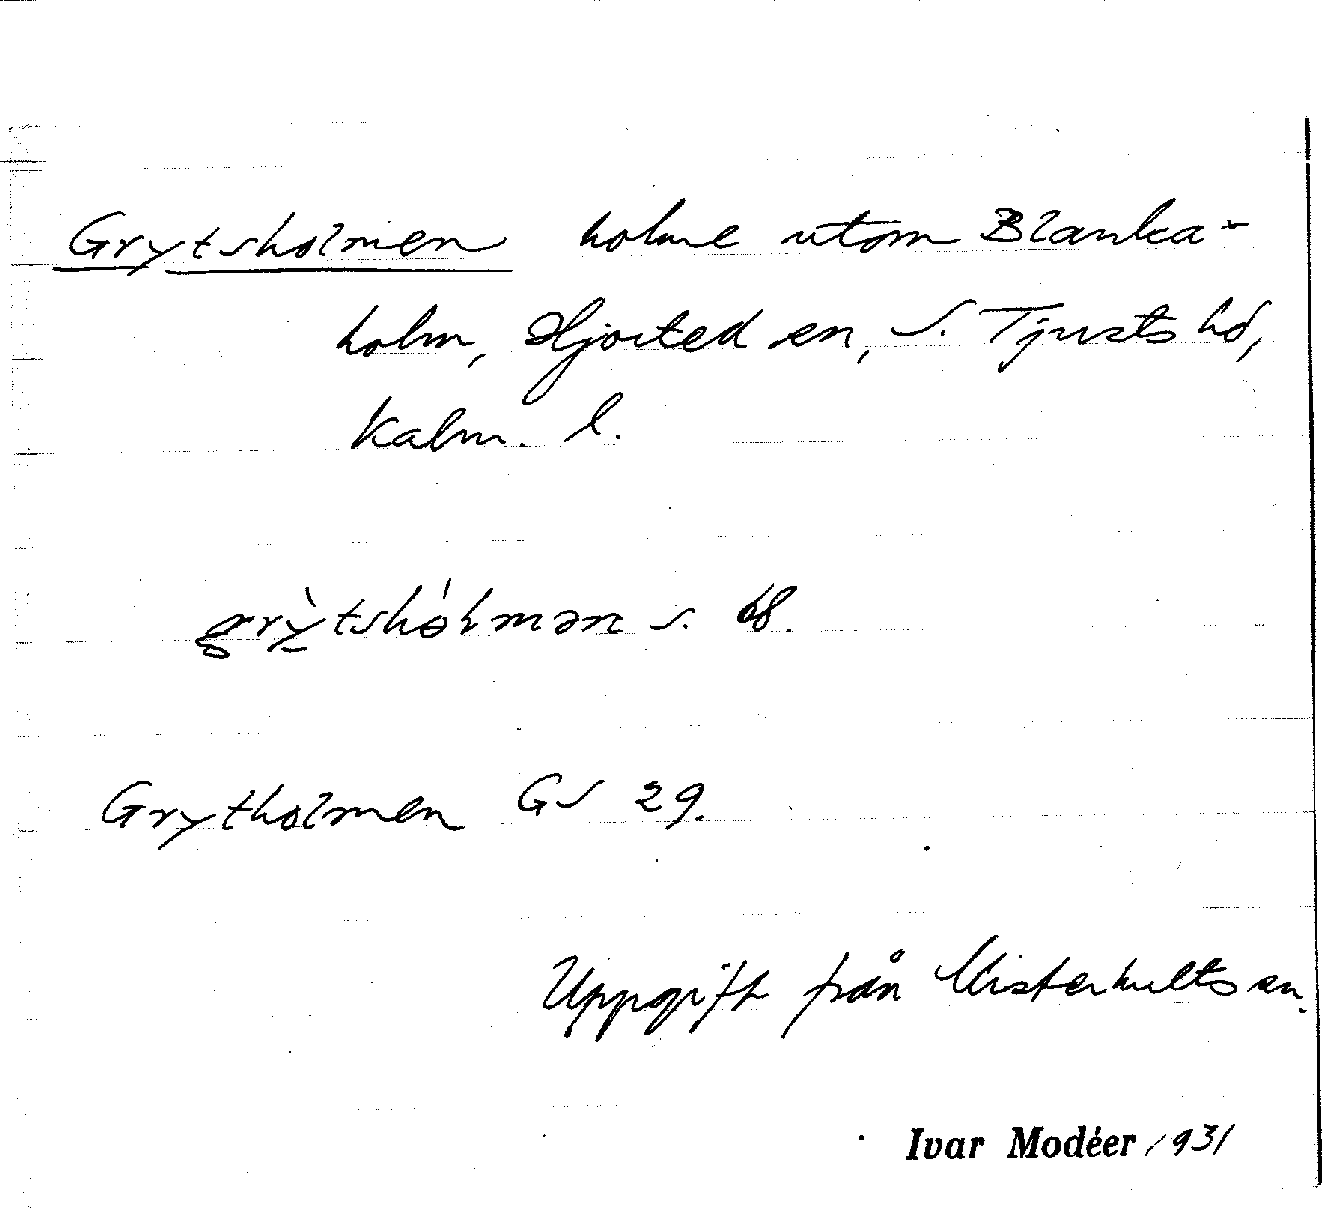 Grytsholmen holme utom Blanka-
holm, Hjorted sn, S. Tjusts hd,
Kalm. l.
grỳtshólmən s. 68.
Grytholmen GS 29.
Uppgift från Misterhults sn.
Ivar Modéer 1931